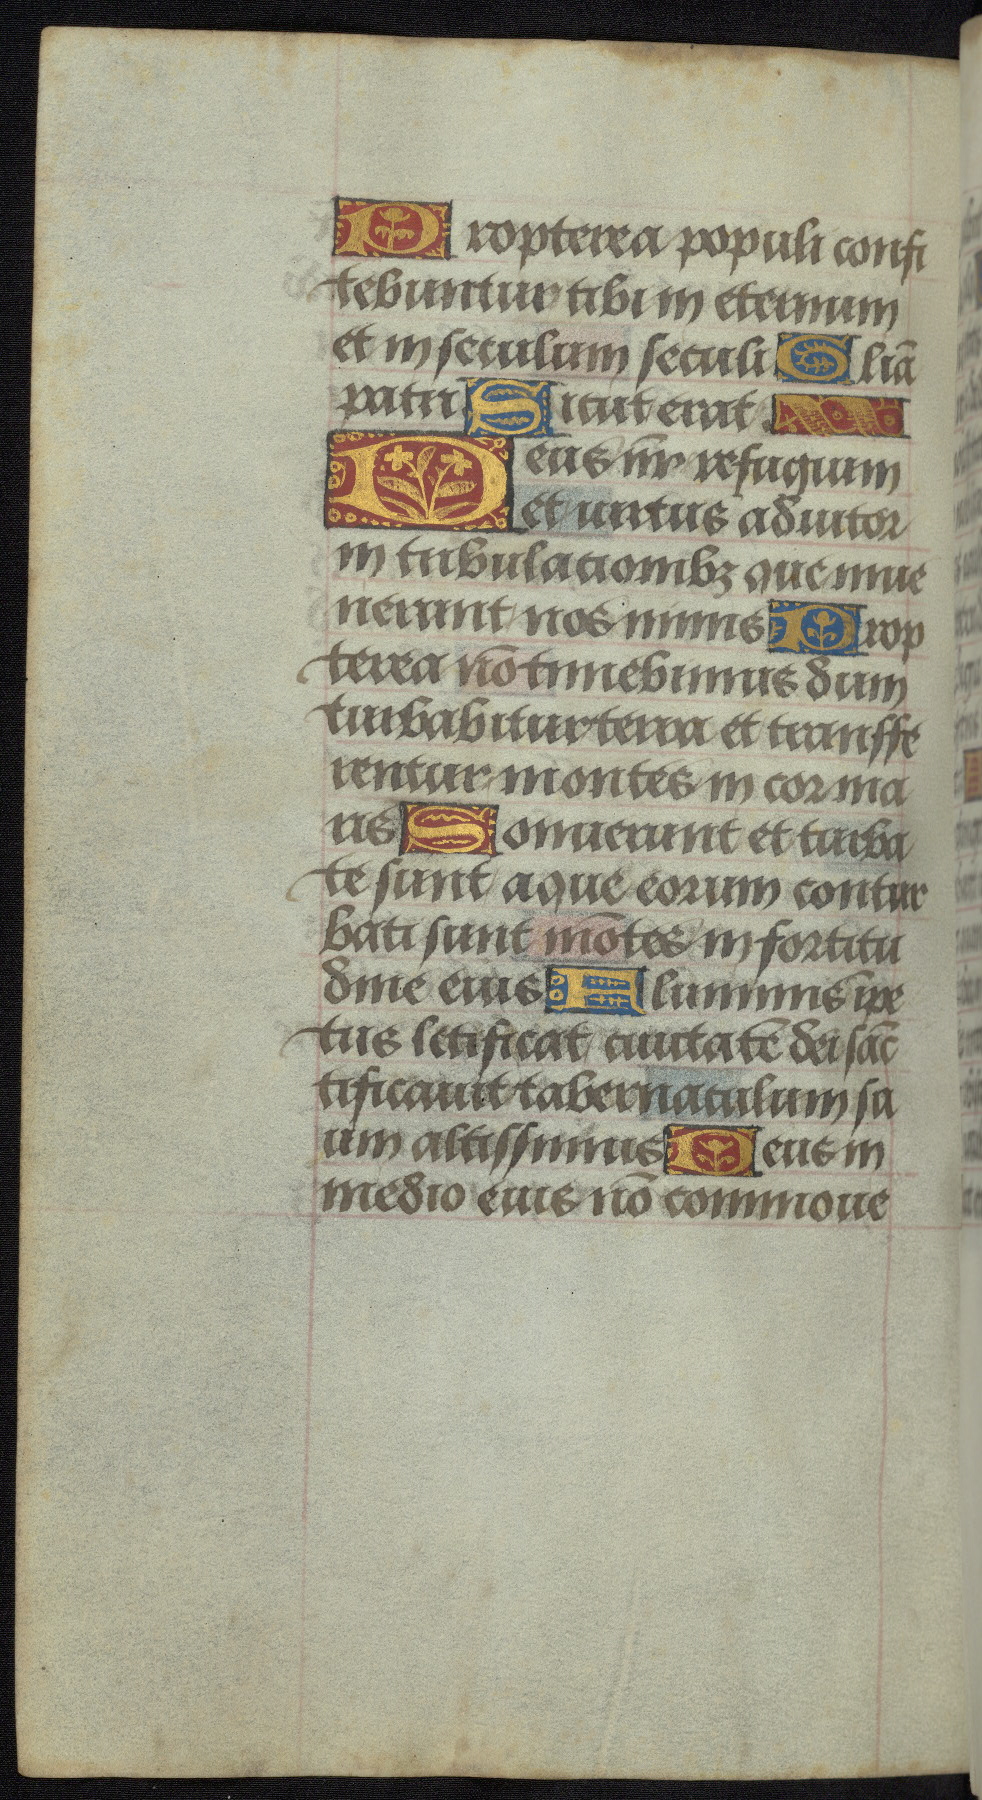 Propterea populi confi
tebuntur tibi in eternum
et in seculum seculi Gliā
patri Sicut erat
Deus nr̄ refugium
et virtus adiutor
in tribulacionibꝫ que inue
nerunt nos nimis Prop
terea nō timebimus dum
turbabitur terra et transffe
rentur montes in cor ma
ris Sonuerunt et turba
te sunt aque eorum contur
bati sunt mōtes in fortitu
dine eius Fluminis īpe
tus letificat ciuitatē dei sāc
tificauit tabernaculum su
um altissimus Deus in
medio eius nō commoue